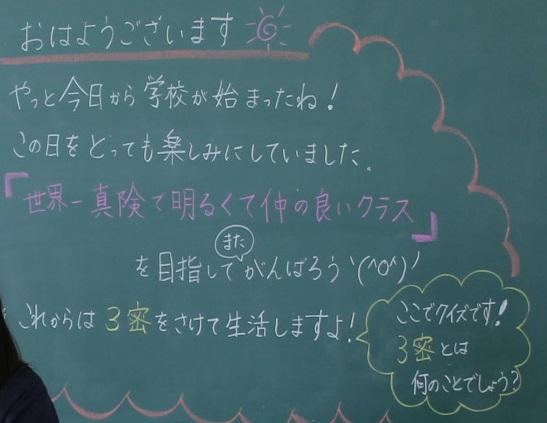 おはようございます
やっと今日から学校が始まったね!
この日をとっても楽しみにしていました。
『世界一真険で明るくて仲の良いクラス』
また
を目指してがんばろう ヽ(^o^)ノ
これからは3密をさけて生活しますよ!
ここでクイズです!
3密とは
何のことでしょう?